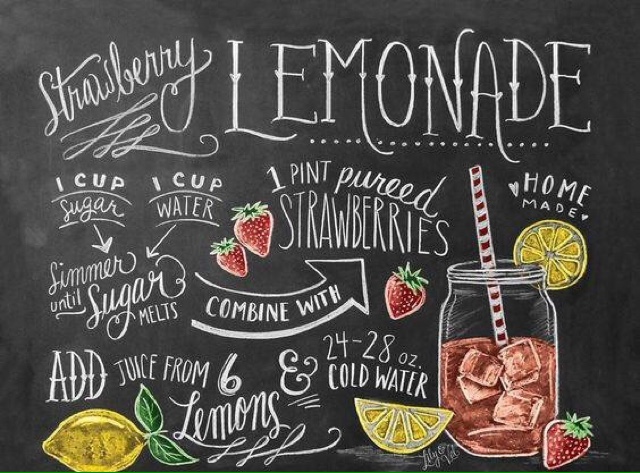 Strawberry LEMONADE
1 CUP Sugar
1 CUP WATER
Simmer
until Sugar
MELTS
COMBINE WITH
1 PINT pureed
STRAWBERRIES
HOME
MADE
ADD JUICE FROM 6
Lemons
& 24-28 oz.
COLD WATER
Lily & Val